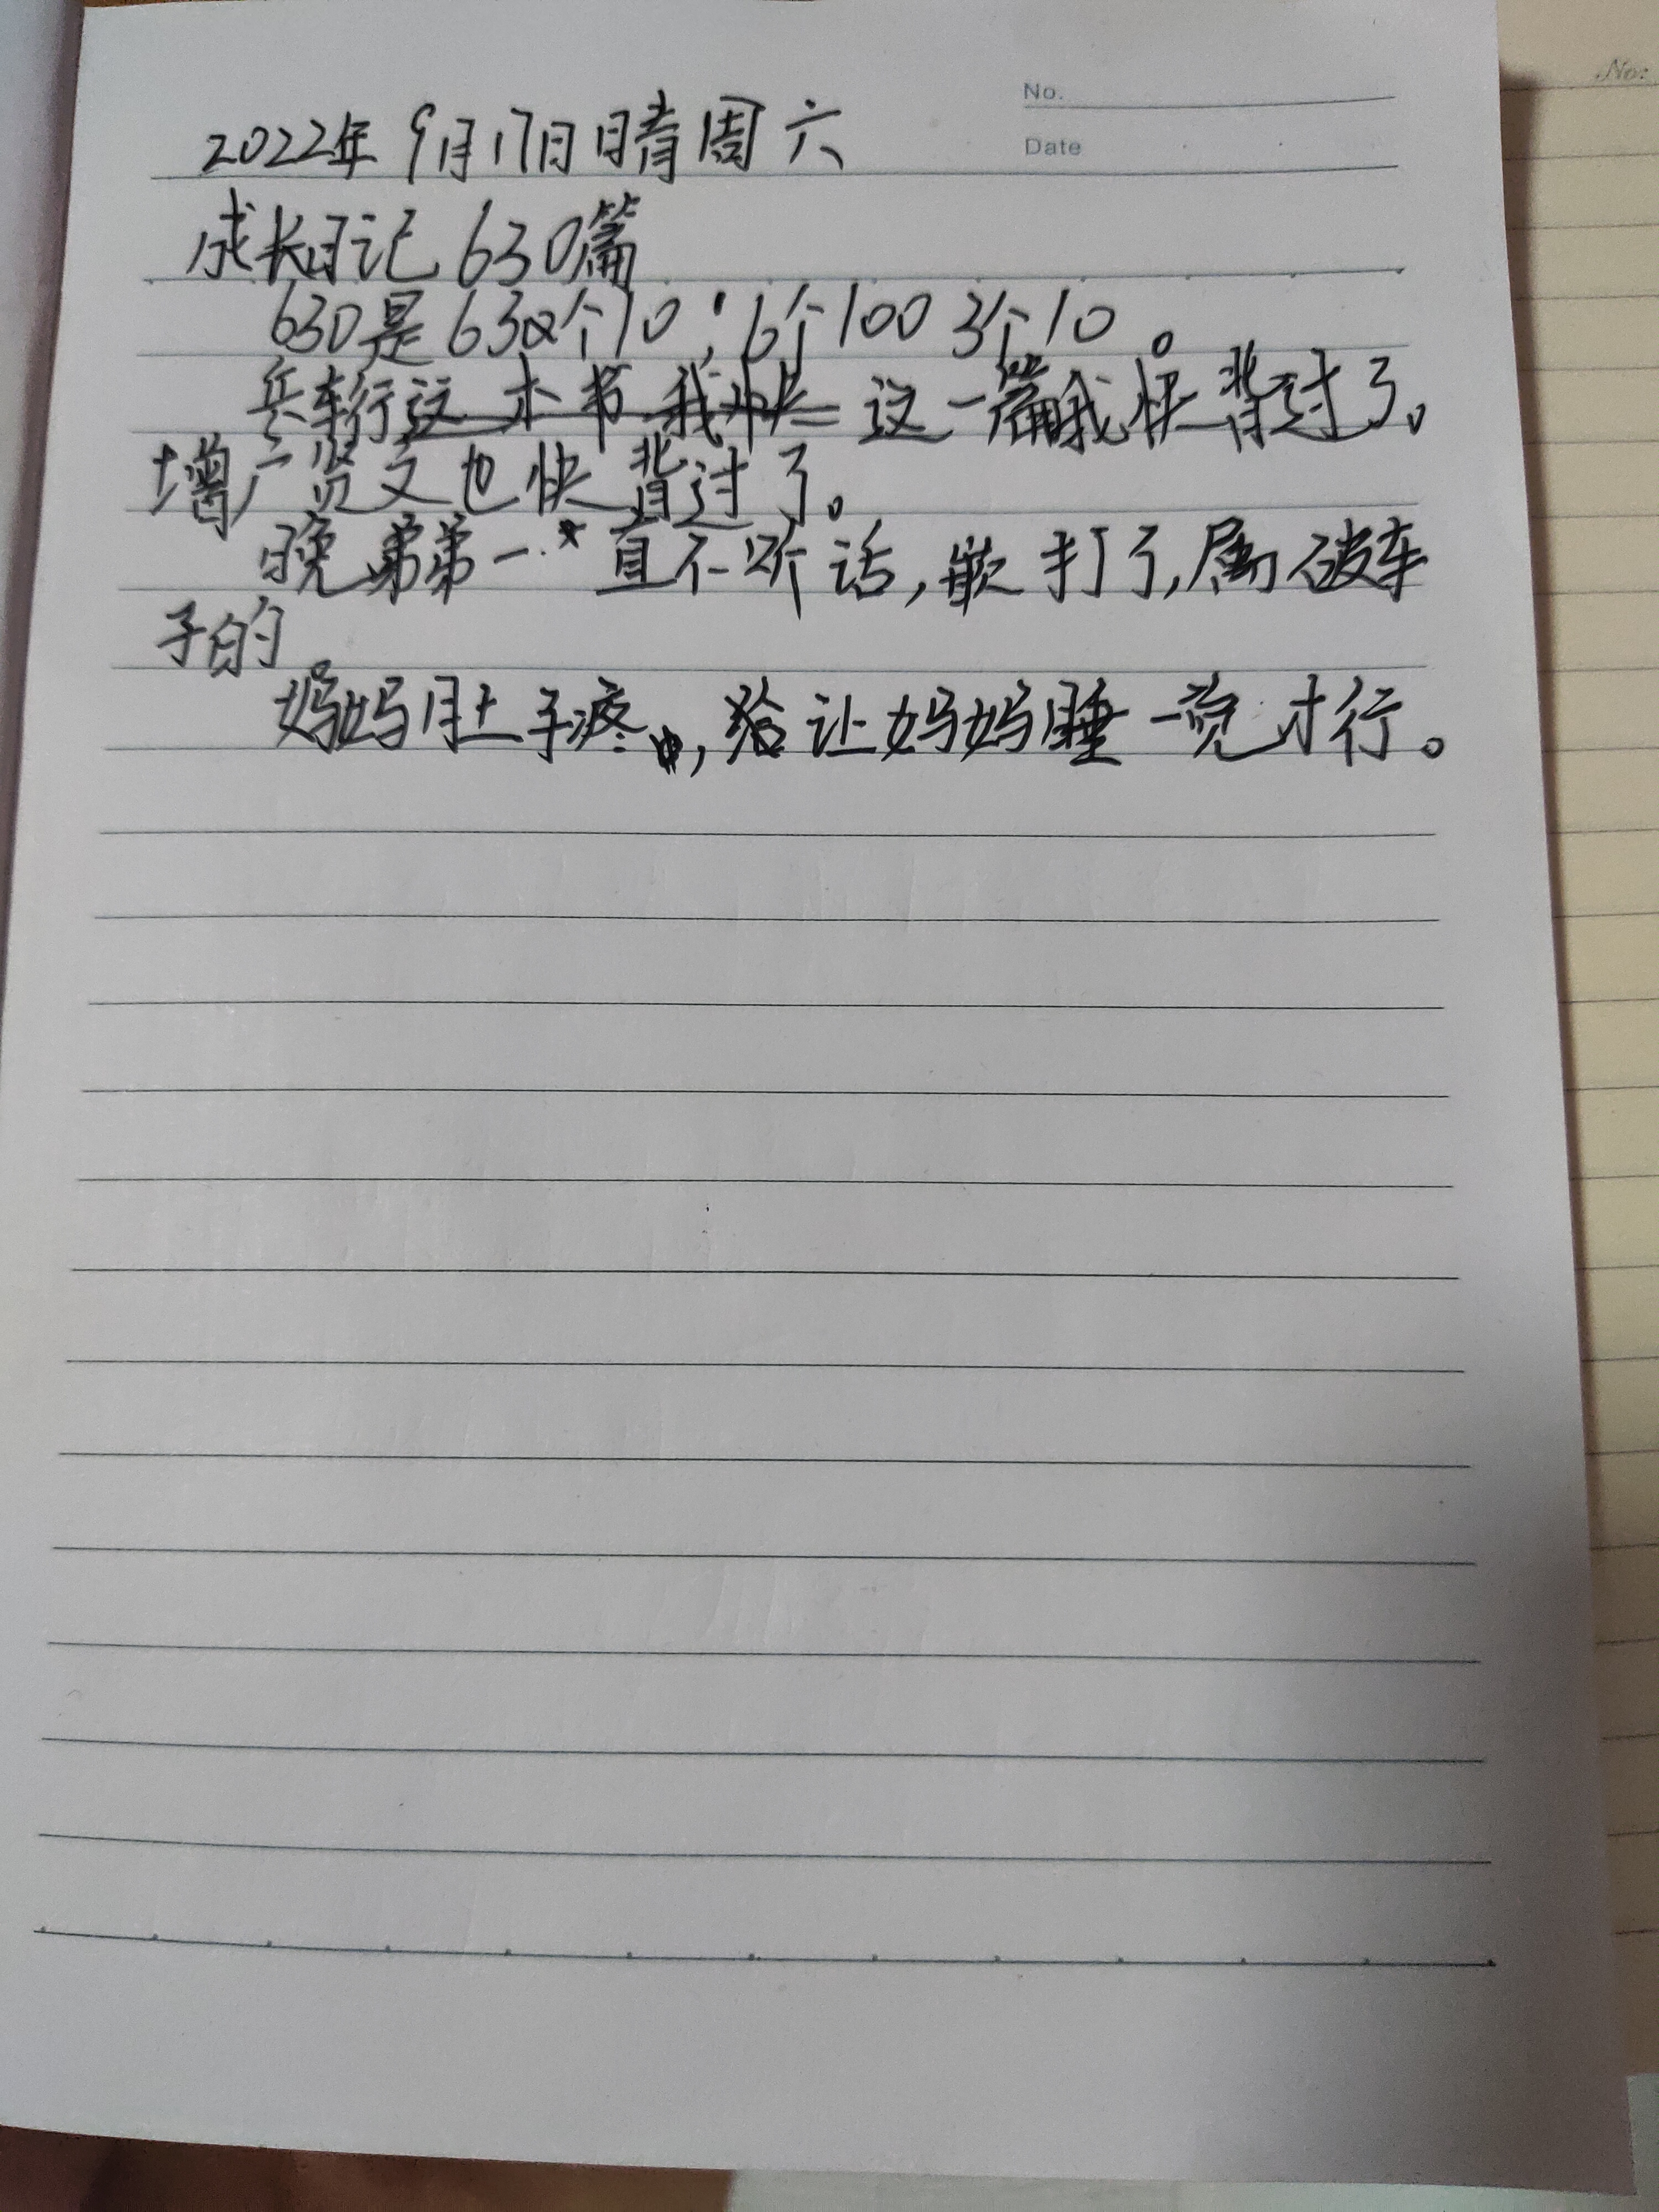 No.
No.
2022年9月17日晴周六
Date
成长日记630篇
630是630个10；6个100 3个10。
兵车行这本书我快这一篇我快背过了。
增广贤文也快背过了。
晚弟弟一直不听话，打了，属破车
子的
妈妈肚子疼，给让妈妈睡一觉才行。